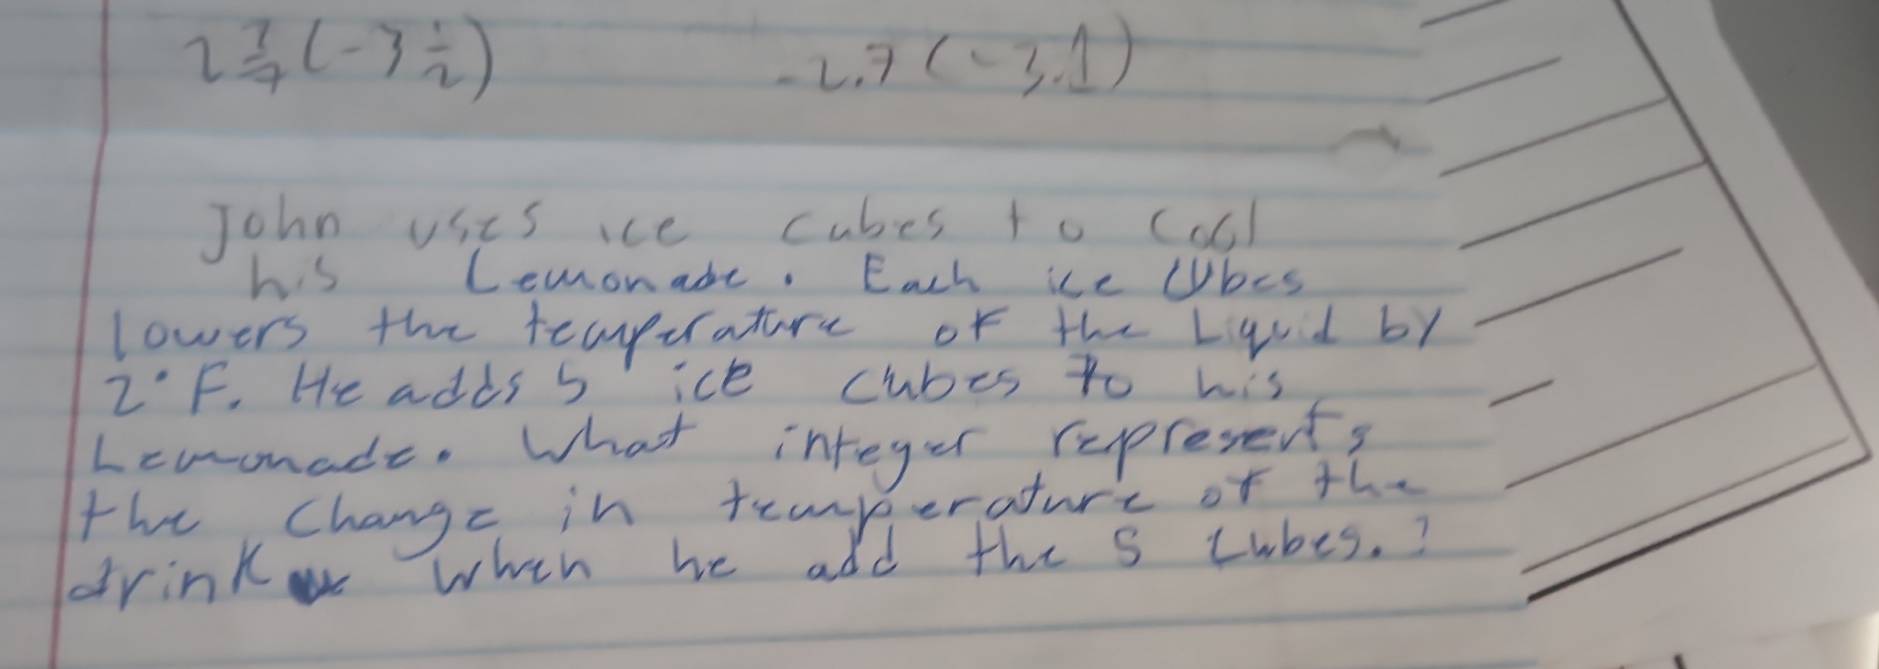 2 3/4 (-3 1/2) -2.7 (-3.1)
John uses ice cubes to cool
his Lemonade. Each ice cubes
lowers the temperature of the Liquid by
2°F. He adds 5 ice cubes to his
Lemonade. What integer represents
the change in temperature of the
drink when he add the 5 cubes.?